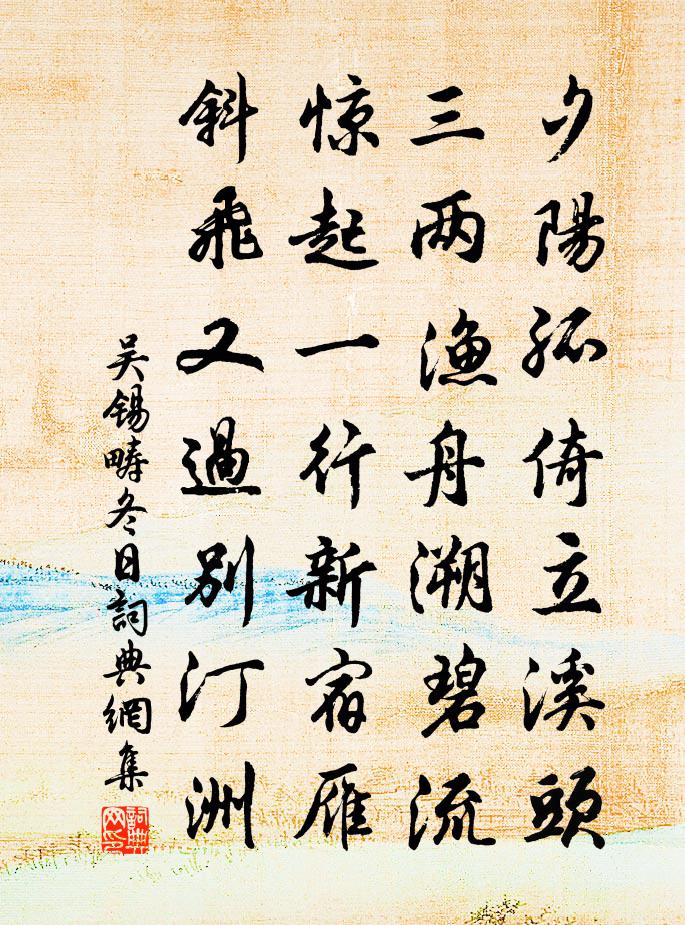 夕陽孤倚立溪頭
三两漁舟溯碧流
惊起一行新宿雁
斜飛又過別汀洲
吴錫疇冬日詞典網集
詞典
网印